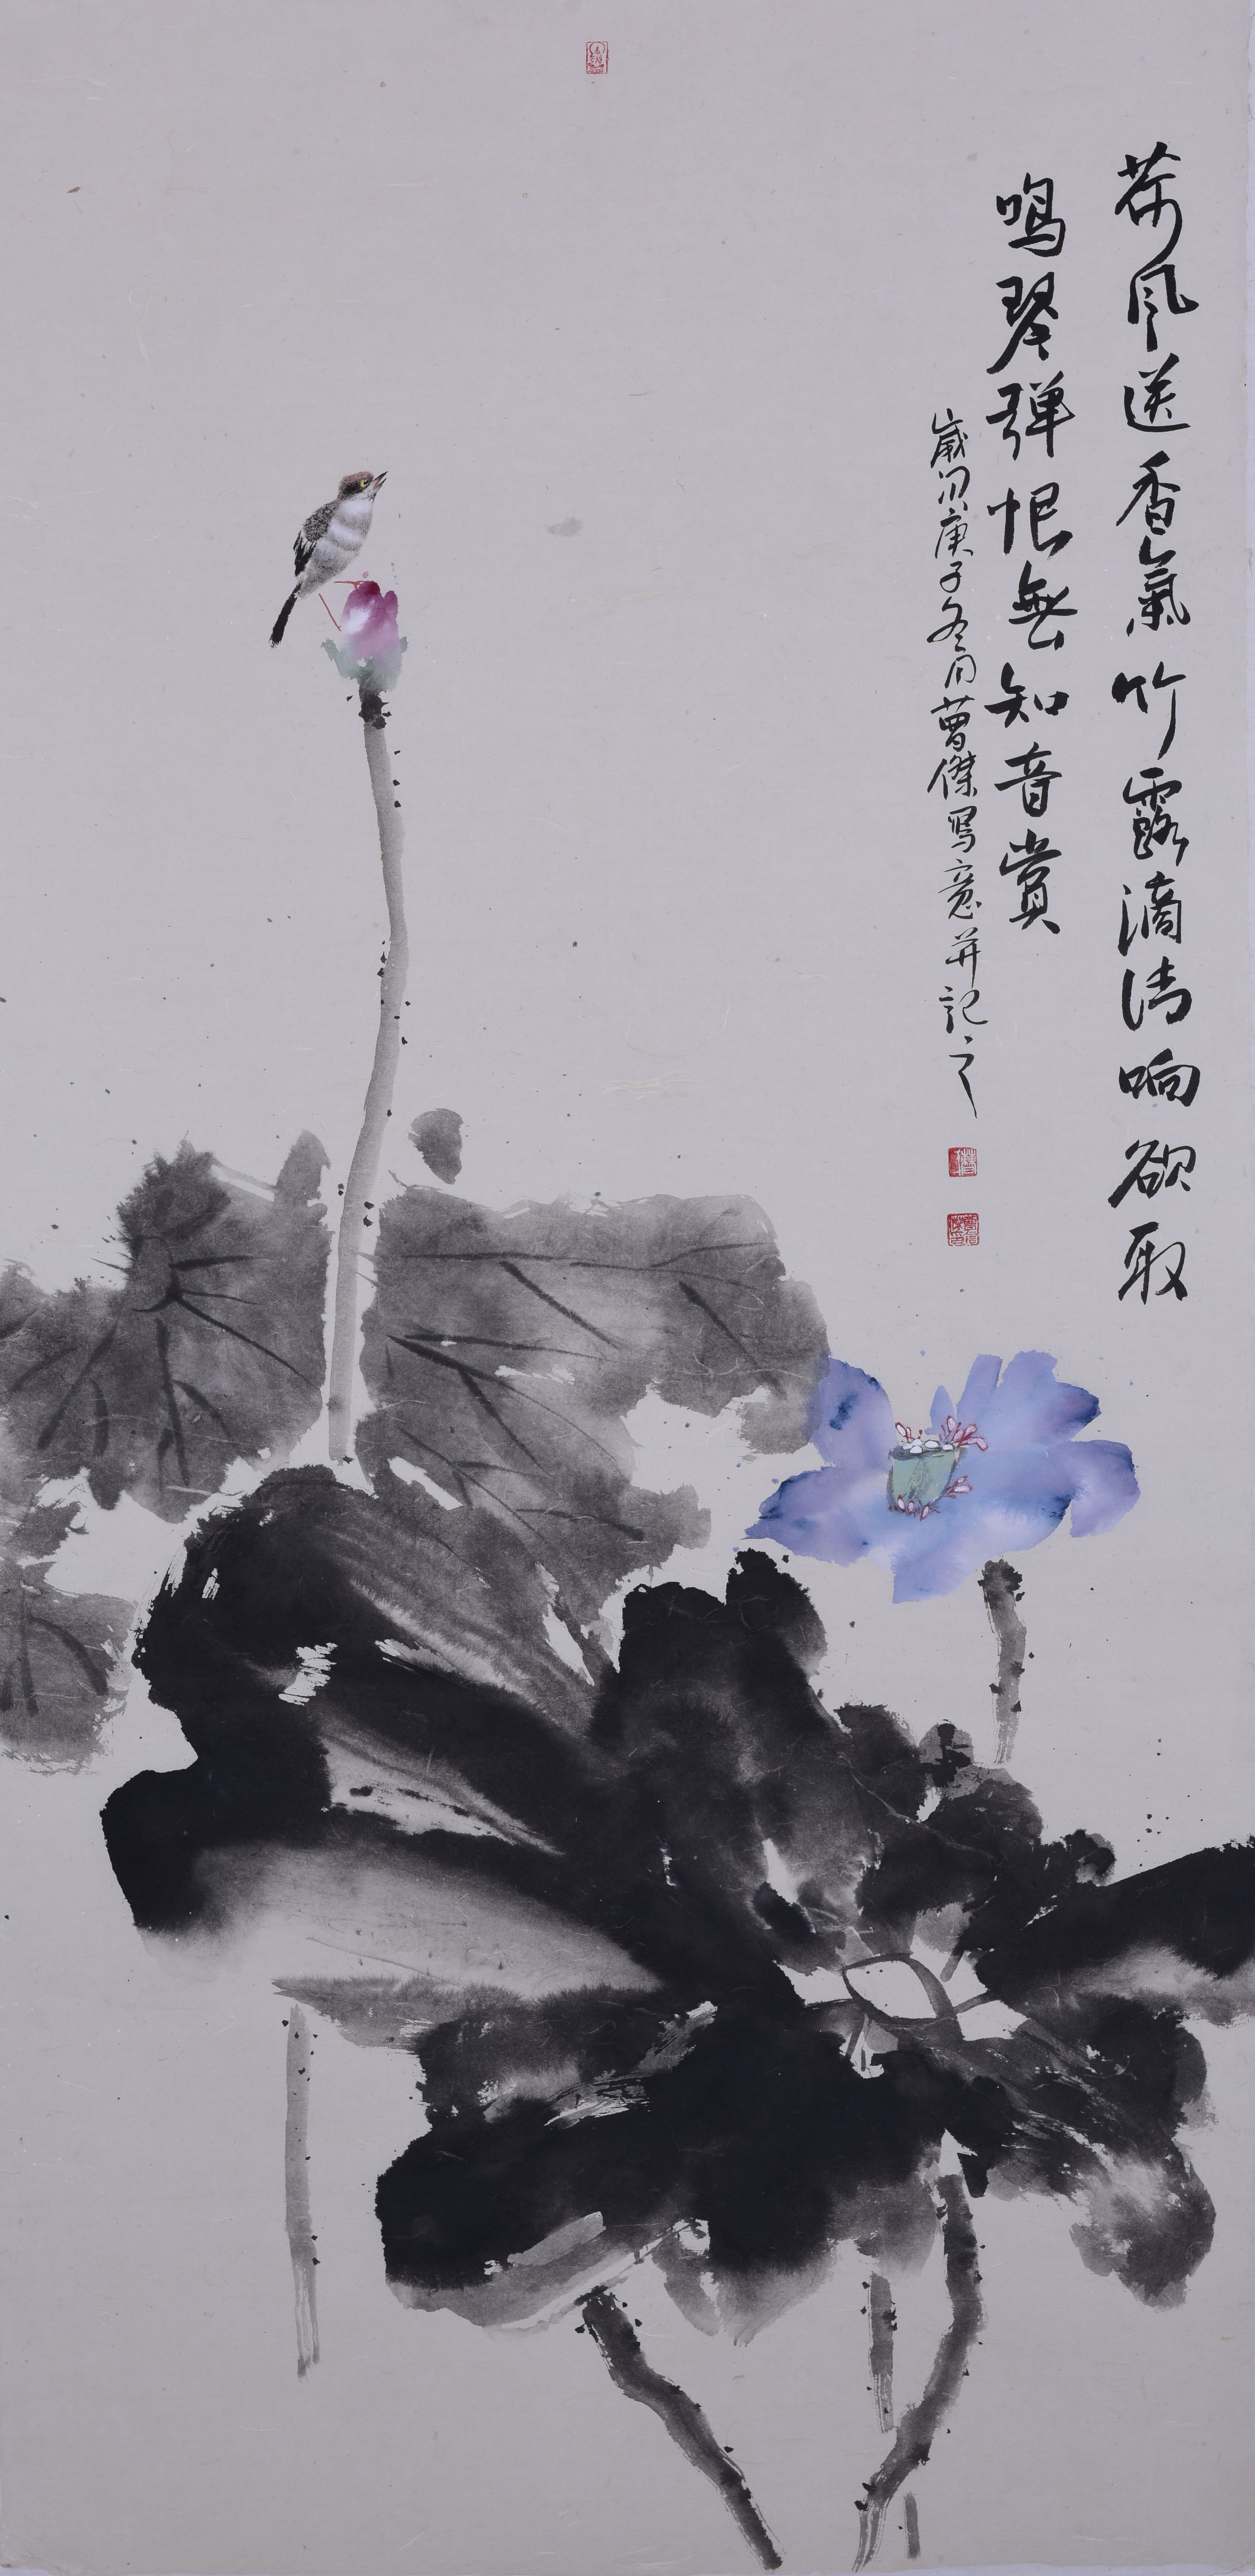 荷风送香氣竹露滴清响欲取
鳴琴弹恨無知音賞
歲次庚子冬月曹傑写意并記之